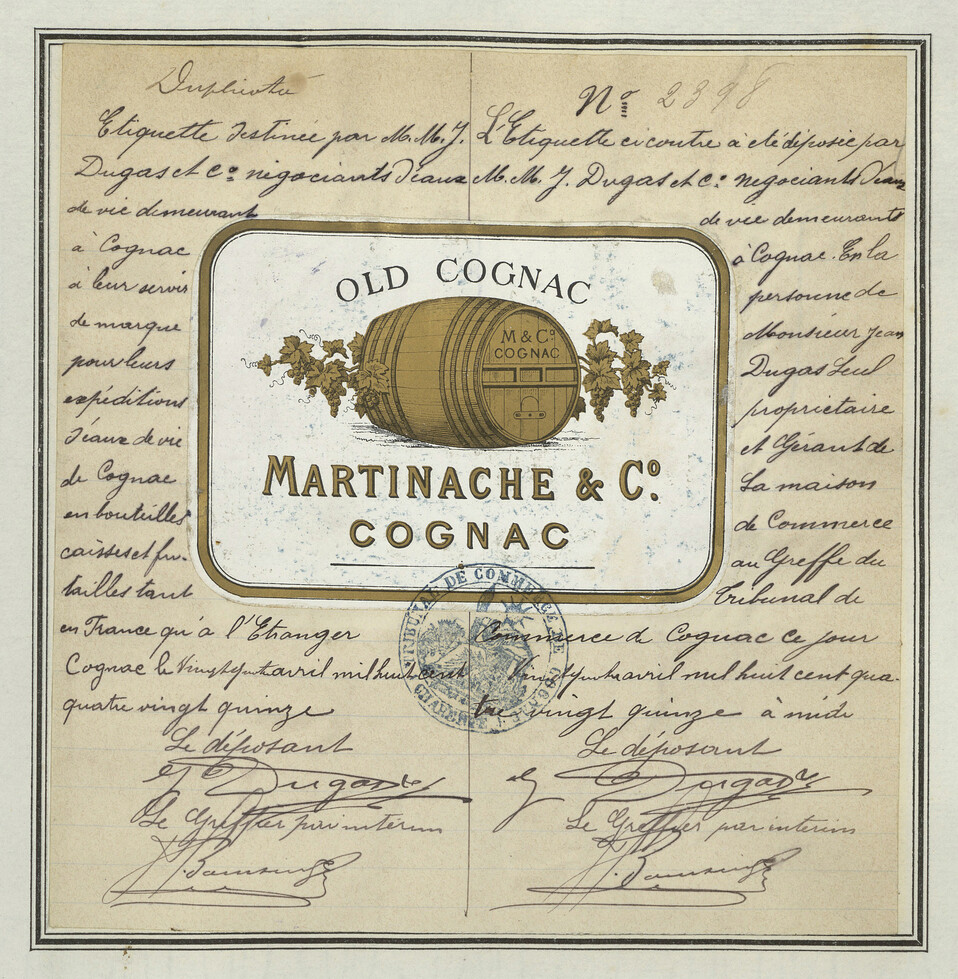 Duplicata
Etiquette destinée par M. M. J.
Dugas et Cº négociants d'eaux
de vie demeurant
à Cognac
à leur servir
de marque
pour leurs
expéditions
d'eaux de vie
de Cognac
en bouteilles
caisses et fu-
tailles tant
en France qu'à l'Etranger
Cognac le Vingt quatre avril mil huit cent
quatre vingt quinze
Le déposant
J Dugas
Le Greffier par intérim
OLD COGNAC
M & Cº
COGNAC
MARTINACHE & Cº.
COGNAC
TRIBUNAL DE COMMERCE DE COGNAC
CHARENTE
Nº 2398
L'Etiquette ci contre à été déposée par
M. M. J. Dugas et Cº négociants d'eaux
de vie demeurants
à Cognac. En la
personne de
Monsieur Jean
Dugas Seul
propriétaire
et Gérant de
La maison
de Commerce
au Greffe du
Tribunal de
Commerce de Cognac ce jour
Vingt quatre avril mil huit cent qua-
tre vingt quinze à midi
Le déposant
J Dugas
Le Greffier par intérim